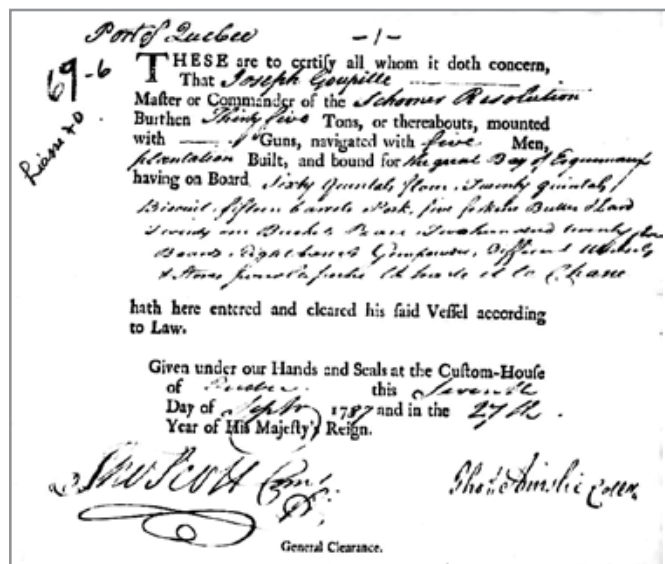 Port of Quebec
—1—
69-6
THESE are to certify all whom it doth concern,
That Joseph Goupille
Master or Commander of the Schooner Resolution
Burthen Thirty five Tons, or thereabouts, mounted
with — Guns, navigated with five Men,
plantation Built, and bound for the great Bay of Esquimaux
having on Board Sixty Quintals flour, Twenty quintals
Biscuit, fifteen barrels Pork, five firkins Butter & Lard
Twenty Bushels Pease Two hundred twenty
Boards, Eight barrels Gunpowder, Different
& Stores
hath here entered and cleared his said Veſſel according
to Law.
Given under our Hands and Seals at the Cuſtom-Houſe
of Quebec this Seventh
Day of Septr 1787 and in the 27th.
Year of His Majeſty's Reign.
Scott
Thos Ainslie Collr.
General Clearance.